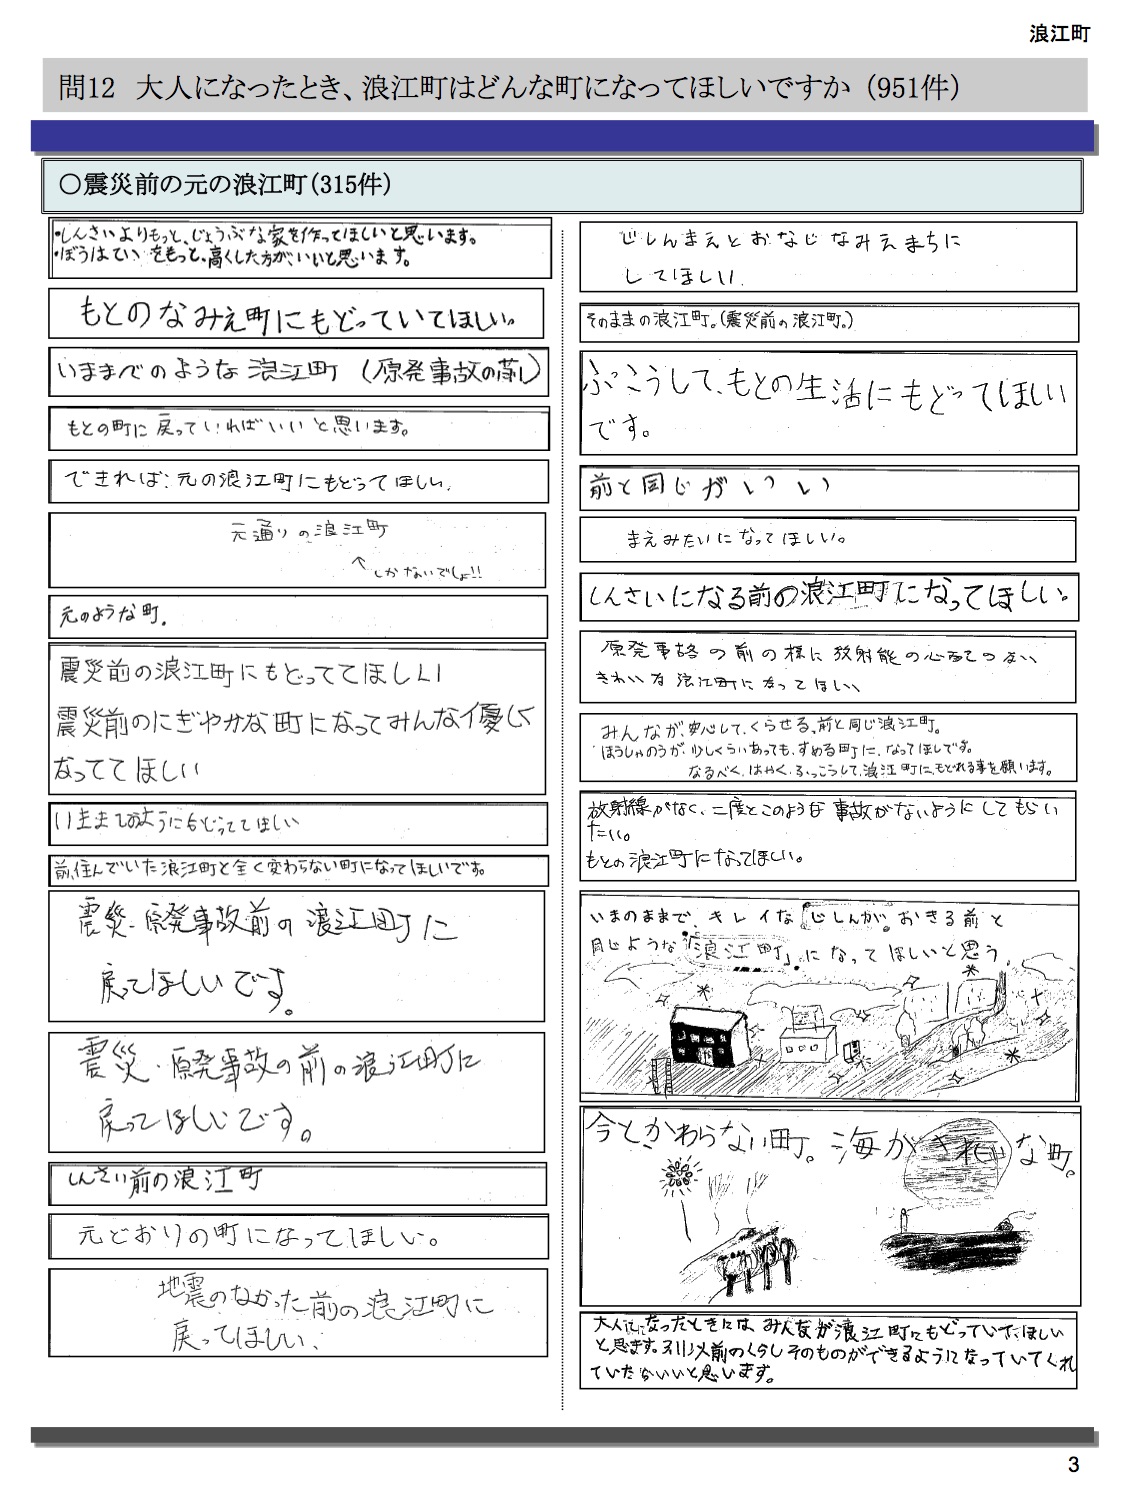 浪江町
問12　大人になったとき、浪江町はどんな町になってほしいですか（951件）
○震災前の元の浪江町（315件）
・しんさいよりもっと、じょうぶな家を作ってほしいと思います。
・ぼうはていをもっと、高くした方が、いいと思います。
もとのなみえ町にもどっていてほしい。
いままでのような浪江町（原発事故の
もとの町に戻っていればいいと思います。
できれば、元の浪江町にもどってほしい。
元通りの浪江町
↑しかないでしょ!!
元のような町。
震災前の浪江町にもどっててほしい
震災前のにぎやかな町になってみんな優しく
なっててほしい
いままでのようにもどっててほしい
前、住んでいた浪江町と全く変わらない町になってほしいです。
震災・原発事故前の浪江町に
戻ってほしいです。
震災・原発事故の前の浪江町に
戻ってほしいです。
しんさい前の浪江町
元どおりの町になってほしい。
地震のなかった前の浪江町に
戻ってほしい、
じしんまえとおなじなみえまちに
してほしい
そのままの浪江町。（震災前の浪江町。）
ふっこうして、もとの生活にもどってほしい
です。
前と同じがいい
まえみたいになってほしい。
しんさいになる前の浪江町になってほしい。
原発事故の前の様に放射能の心配のない
きれいな浪江町になってほしい
みんなが、安心して、くらせる、前と同じ浪江町。
ほうしゃのうが、少しくらいあっても、すめる町に、なってほしです。
なるべく、はやく、ふっこうして、浪江町に、もどれる事を願います。
放射線がなく、二度とこのような事故がないようにしてもらい
たい。
もとの浪江町になってほしい。
いまのままで、キレイな「じしんが」おきる前と
同じような「浪江町」になってほしいと思う。
今とかわらない町。海がきれいな町。
大人になったときには、みんなが浪江町にもどっていて、ほしい
と思ます。3/11以前のくらしそのものができるようになっていてくれ
ていたらいいと思います。
3